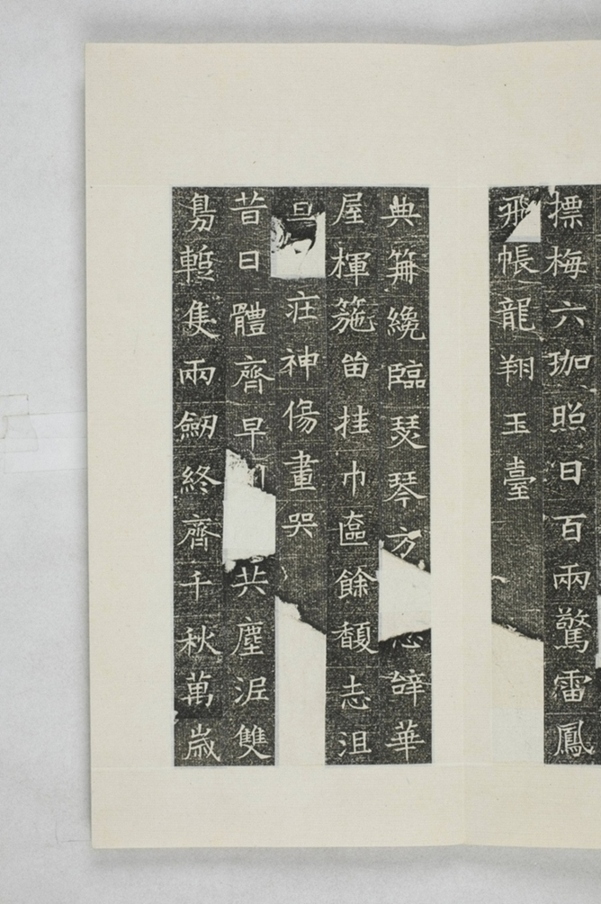 摽梅六珈照日百兩驚雷鳳
飛帳龍翔玉臺
典笄纔臨瑟琴方辭華
屋楎箷留挂巾匳餘馥志沮
莊神傷畫哭
昔日體齊早共塵泥雙
鳧暫隻兩劒終齊千秋萬歲